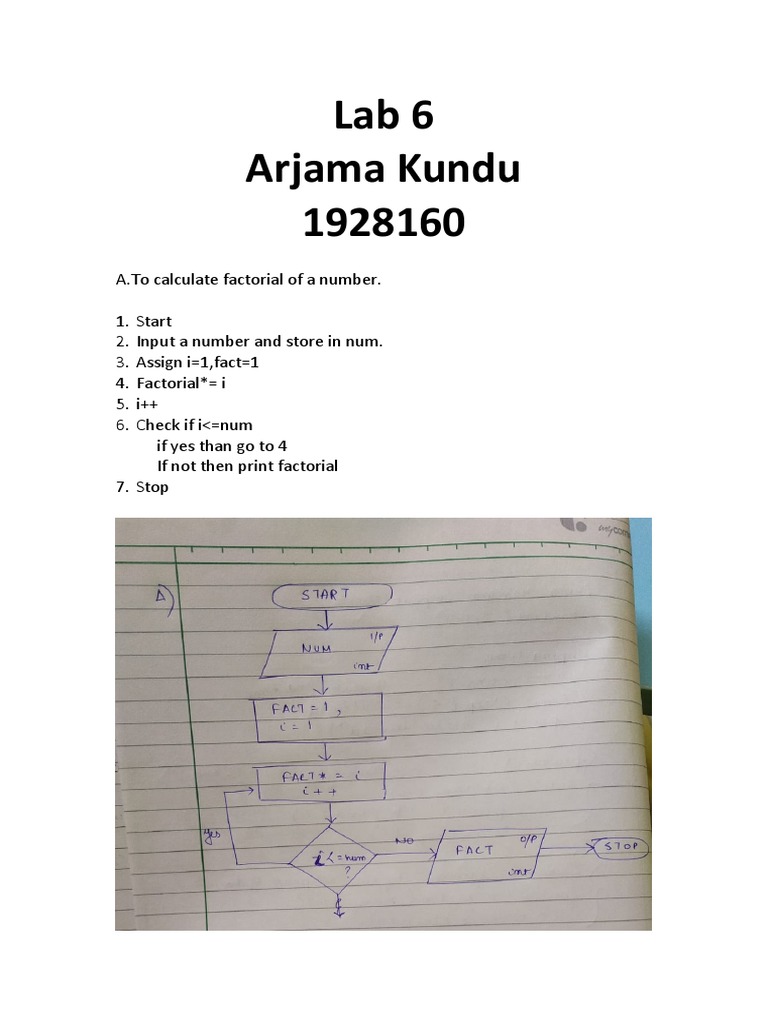 Lab 6
Arjama Kundu
1928160
A.To calculate factorial of a number.
1. Start
2. Input a number and store in num.
3. Assign i=1,fact=1
4. Factorial*= i
5. i++
6. Check if i<=num
if yes than go to 4
If not then print factorial
7. Stop
A)
START
I/P
NUM
int
FACT = 1,
i = 1
FACT* = i
i++
Yes
i<=num
?
NO
O/P
FACT
int
STOP